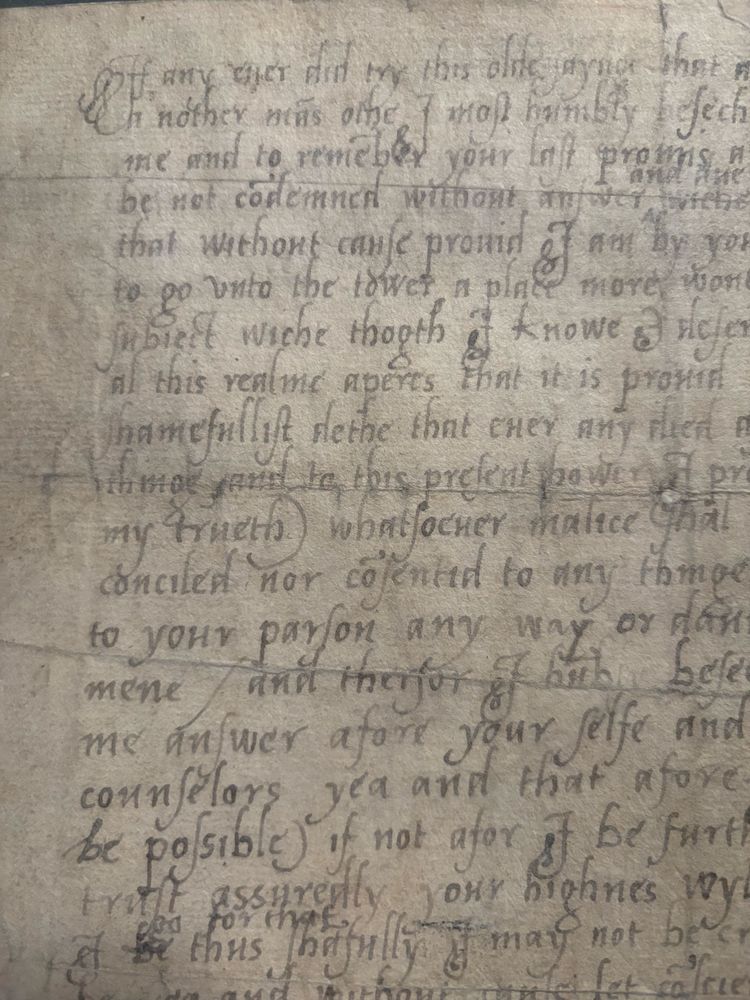 If any ever did try this olde saynge that a
th nother mās othe I most humbly besech
me and to remēber your last promis a
and ane
be not cōdemned without answer wiche
that without cause provid I am by you
to go unto the tower a place more won
subject wiche thogth I knowe I deser
al this realme aperes that it is provid
shamefullist dethe that ever any died a
thinge and to this present hower I pr
my trueth) whatsoever malice shal
conciled nor cōsentid to any thinge
to your parson any way or dan
mene / and therfor I hūbly besec
me answer afore your selfe and
counselors yea and that afore
be possible) if not afor I be furth
trust assuredly your highnes wyl
for that
be thus shāfully I may not be cr
and without cause let cōscie